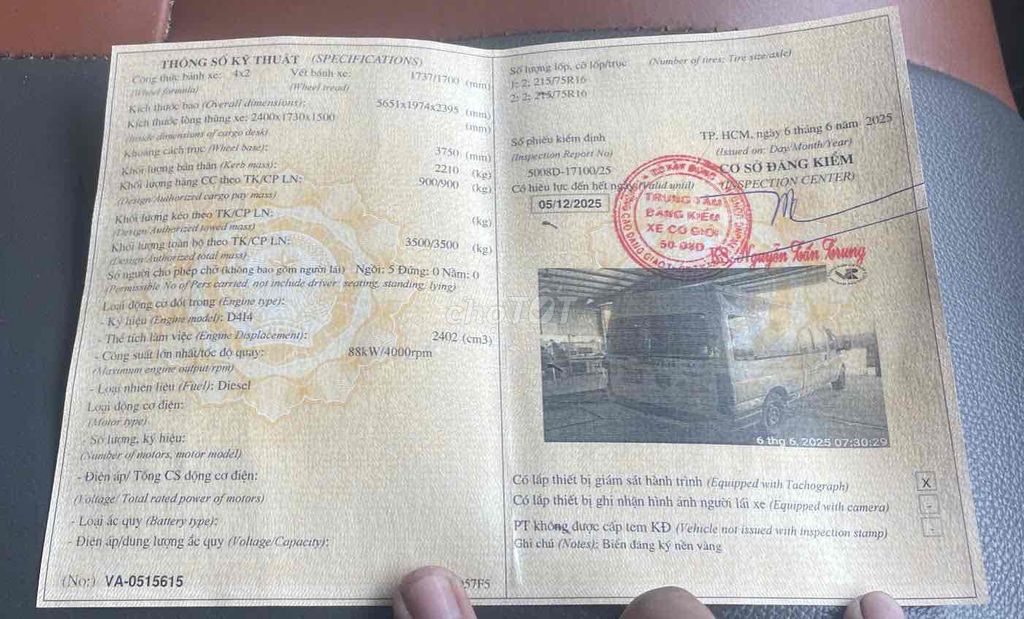 THÔNG SỐ KỸ THUẬT (SPECIFICATIONS)
Công thức bánh xe: 4x2 Vết bánh xe: 1737/1700 (mm)
(Wheel formula) (Wheel tread)
Kích thước bao (Overall dimensions): 5651x1974x2395 (mm)
Kích thước lòng thùng xe: 2400x1730x1500 (mm)
(Inside dimensions of cargo desk)
Khoảng cách trục (Wheel base): 3750 (mm)
Khối lượng bản thân (Kerb mass): 2210 (kg)
Khối lượng hàng CC theo TK/CP LN: 900/900 (kg)
(Design/Authorized cargo pay mass)
Khối lượng kéo theo TK/CP LN: (kg)
(Design/Authorized towed mass)
Khối lượng toàn bộ theo TK/CP LN: 3500/3500 (kg)
(Design/Authorized total mass)
Số người cho phép chở (không bao gồm người lái) Ngồi: 5 Đứng: 0 Nằm: 0
(Permissible No of Pers carried, not include driver: seating, standing, lying)
Loại động cơ đốt trong (Engine type):
- Ký hiệu (Engine model): D4F4
- Thể tích làm việc (Engine Displacement): 2402 (cm3)
- Công suất lớn nhất/tốc độ quay: 88kW/4000rpm
(Maximum engine output/rpm)
- Loại nhiên liệu (Fuel): Diesel
Loại động cơ điện:
(Motor type)
- Số lượng, ký hiệu:
(Number of motors, motor model)
- Điện áp/ Tổng CS động cơ điện:
(Voltage/ Total rated power of motors)
- Loại ắc quy (Battery type):
- Điện áp/dung lượng ắc quy (Voltage/Capacity):
(No:) VA-0515615
957F5
Số lượng lốp, cỡ lốp/trục (Number of tires; Tire size/axle)
1: 2; 215/75R16
2: 2; 215/75R16
Số phiếu kiểm định
(Inspection Report No)
5008D-17100/25
Có hiệu lực đến hết ngày (Valid until)
05/12/2025
TP. HCM, ngày 6 tháng 6 năm 2025
(Issued on: Day/Month/Year)
CƠ SỞ ĐĂNG KIỂM
(INSPECTION CENTER)
TRUNG TÂM
ĐĂNG KIỂM
XE CƠ GIỚI
50-08D
Nguyễn Tấn Trung
VR
6 thg 6, 2025 07:30:29
chợTỐT
Có lắp thiết bị giám sát hành trình (Equipped with Tachograph) X
Có lắp thiết bị ghi nhận hình ảnh người lái xe (Equipped with camera) -
PT không được cấp tem KĐ (Vehicle not issued with inspection stamp) -
Ghi chú (Notes): Biển đăng ký nền vàng